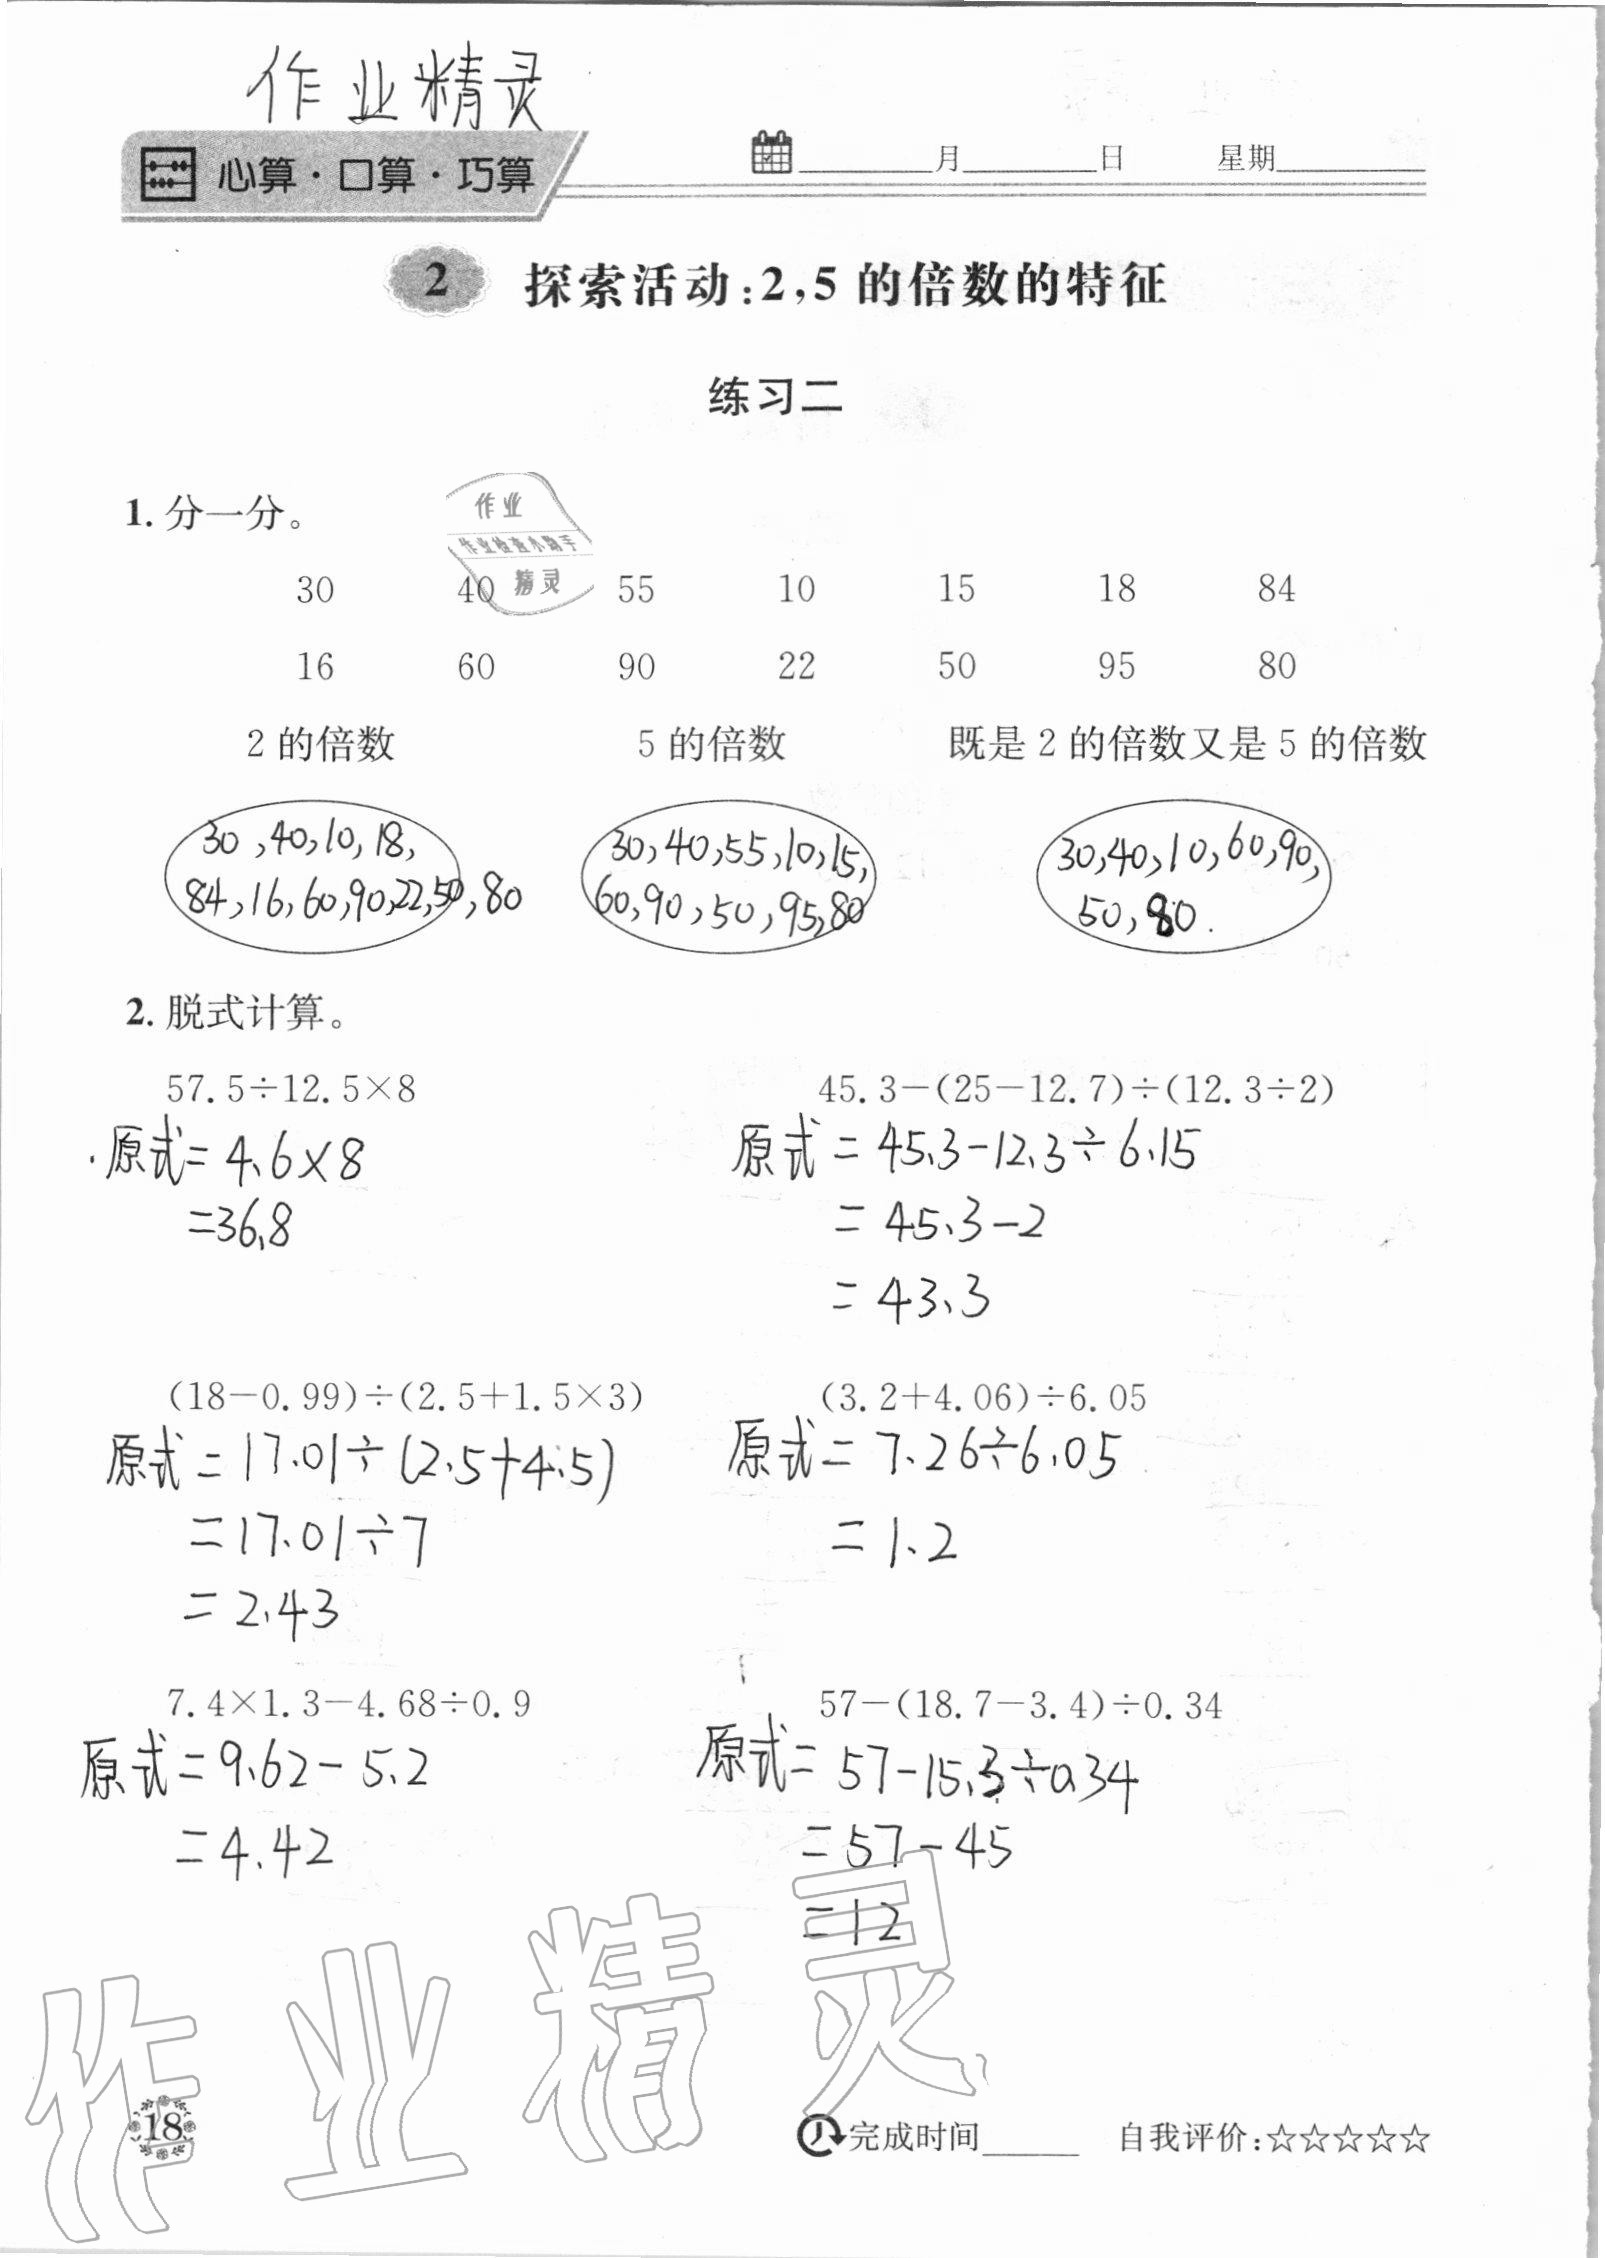 作业精灵
心算·口算·巧算
____月____日 星期____
2 探索活动:2,5的倍数的特征
练习二
1. 分一分。
作业
作业检查小助手
精灵
30 40 55 10 15 18 84
16 60 90 22 50 95 80
2的倍数 5的倍数 既是2的倍数又是5的倍数
30,40,10,18, 30,40,55,10,15, 30,40,10,60,90,
84,16,60,90,22,50,80 60,90,50,95,80 50,80.
2. 脱式计算。
57.5÷12.5×8 45.3-(25-12.7)÷(12.3÷2)
原式=4.6×8 原式=45.3-12.3÷6.15
=36.8 =45.3-2
=43.3
(18-0.99)÷(2.5+1.5×3) (3.2+4.06)÷6.05
原式=17.01÷(2.5+4.5) 原式=7.26÷6.05
=17.01÷7 =1.2
=2.43
7.4×1.3-4.68÷0.9 57-(18.7-3.4)÷0.34
原式=9.62-5.2 原式=57-15.3÷0.34
=4.42 =57-45
=12
作业精灵
18 完成时间____ 自我评价:☆☆☆☆☆